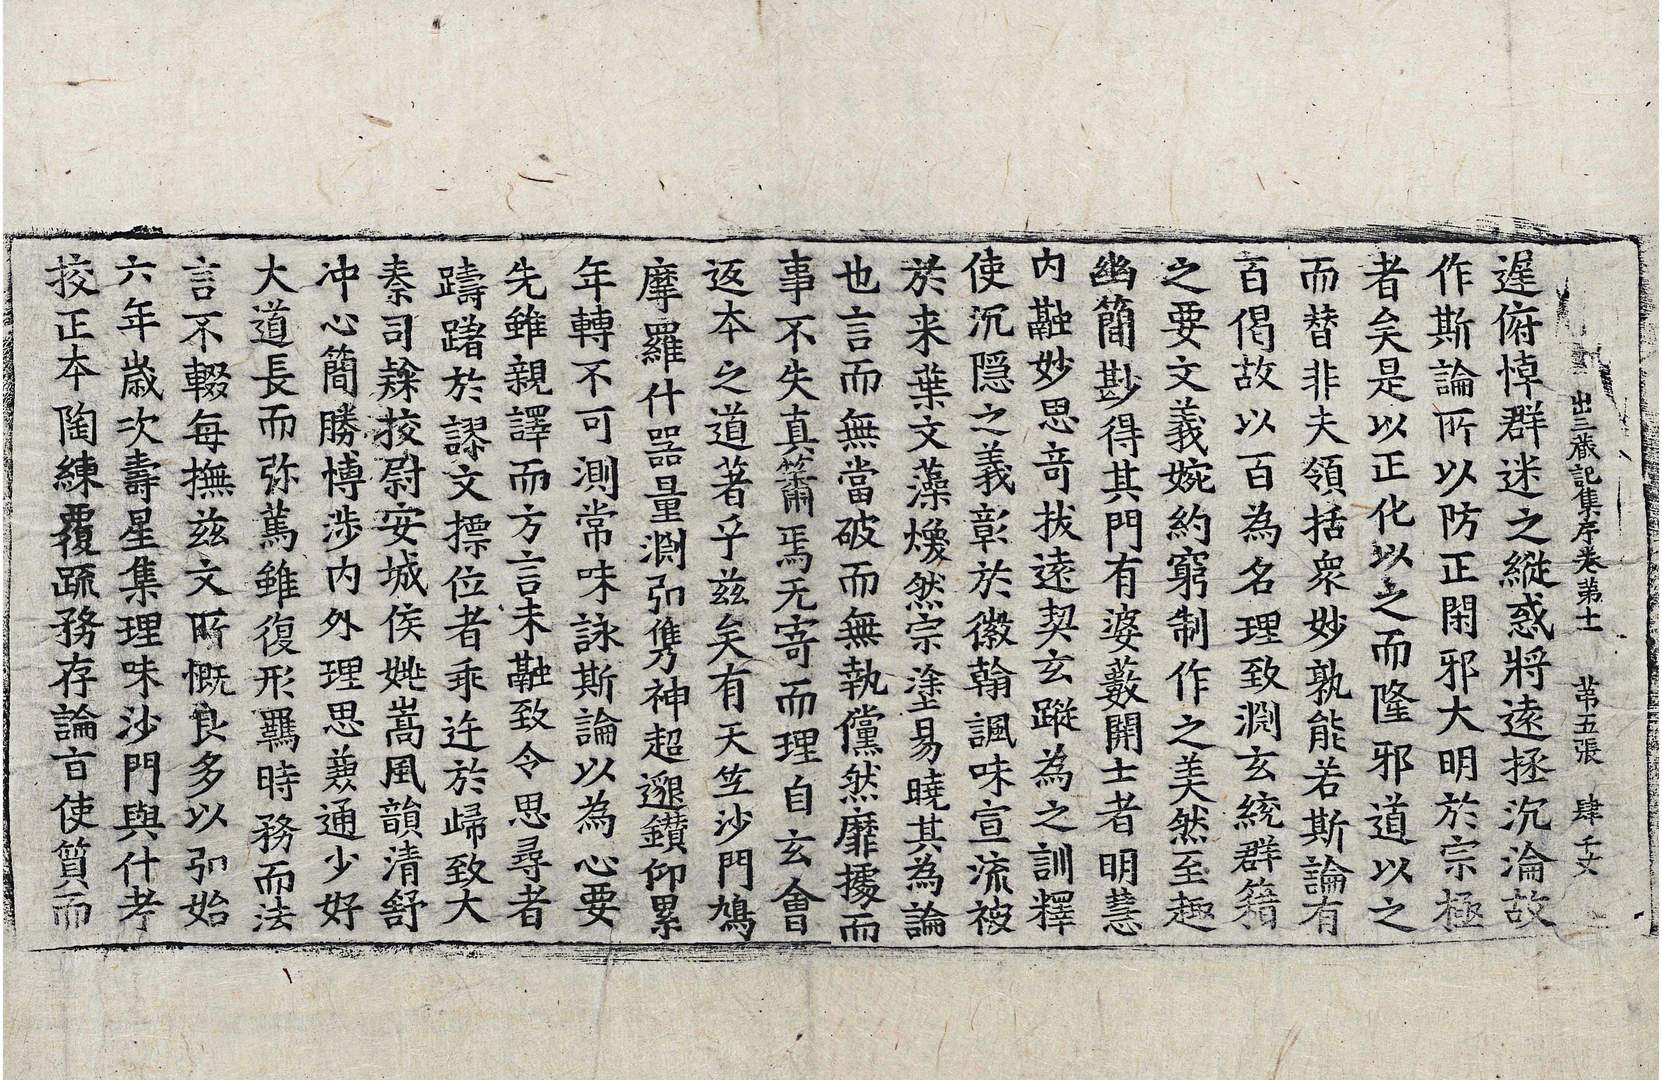 出三蔵記集序卷第十一　第五張　肆千文
遅俯悼群迷之縱惑將遠拯沉淪故
作斯論所以防正閑邪大明於宗極
者矣是以正化以之而隆邪道以之
而替非夫領括衆妙孰能若斯論有
百偈故以百為名理致淵玄統群籍
之要文義婉約窮制作之美然至趣
幽簡尠得其門有婆藪開士者明慧
内融妙思奇拔遠契玄蹤為之訓釋
使沉隠之義彰於徽翰諷味宣流被
於来葉文藻煥然宗塗易曉其為論
也言而無當破而無執儻然靡據而
事不失真簫焉无寄而理自玄會
返本之道著乎兹矣有天竺沙門鳩
摩羅什器量淵弘雋神超邈鑚仰累
年轉不可測常味詠斯論以為心要
先雖親譯而方言未融致令思尋者
躊躇於謬文摽位者乖迕於歸致大
秦司𨽻挍尉安城侯姚嵩風韻清舒
冲心簡勝愽渉内外理思兼通少好
大道長而弥篤雖復形羈時務而法
言不輟每撫兹文所慨良多以弘始
六年歲次壽星集理味沙門與什考
挍正本陶練覆䟽務存論㫖使質而